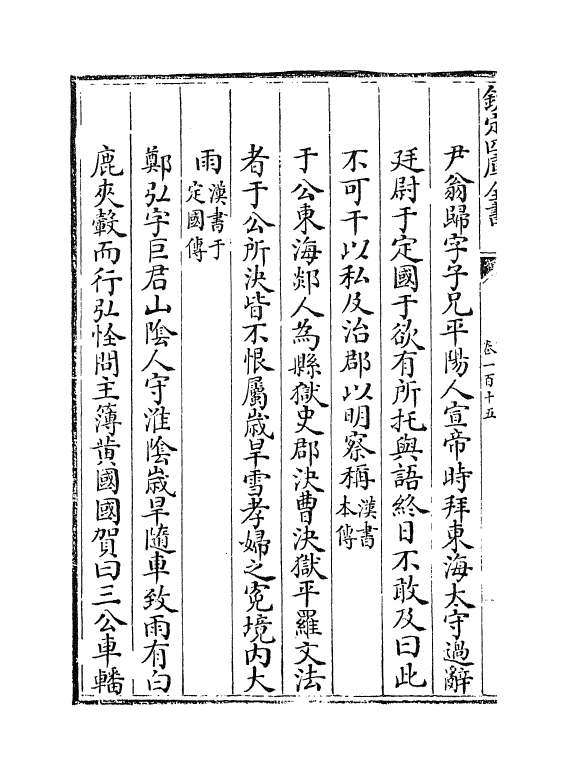 欽定四庫全書
卷一百十五
尹翁歸字子兄平陽人宣帝時拜東海太守過辭
廷尉于定國于欲有所托與語終日不敢及曰此
不可干以私及治郡以明察稱漢書本傳
于公東海郯人為縣獄史郡決曹決獄平羅文法
者于公所決皆不恨屬歲旱雪孝婦之寃境內大
雨漢書于定國傳
鄭弘字巨君山陰人守淮陰歲旱隨車致雨有白
鹿夾轂而行弘怪問主簿黄國國賀曰三公車轓